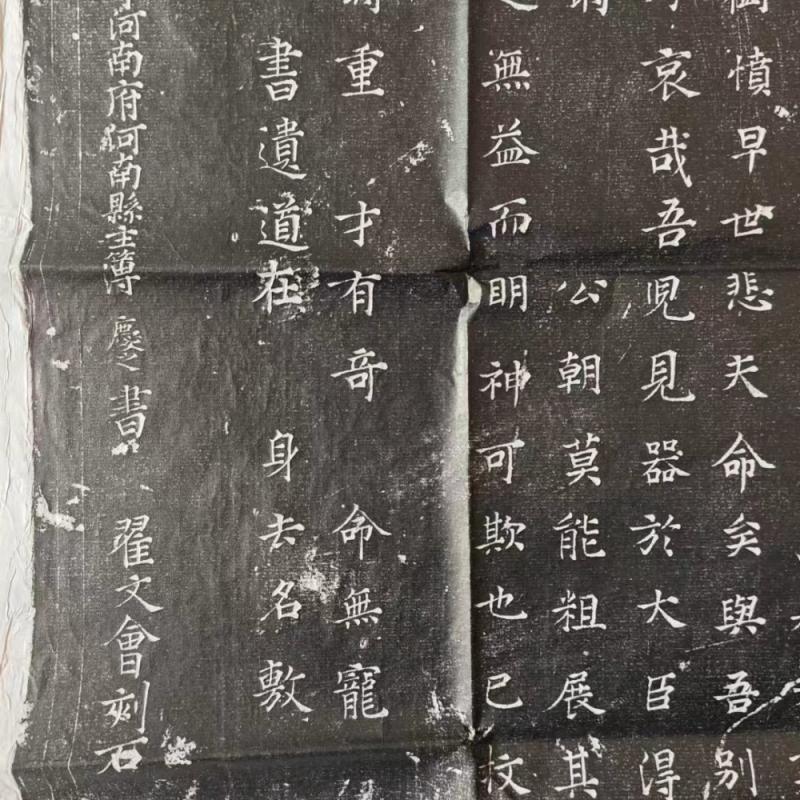 憤早世悲夫命矣與吾別
哀哉吾児見器於大臣得
公朝莫能粗展其
無益而明神可欺也已
重才有奇命無寵
書遺道在身去名敷
河南府河南縣主簿慶之書翟文會刻石